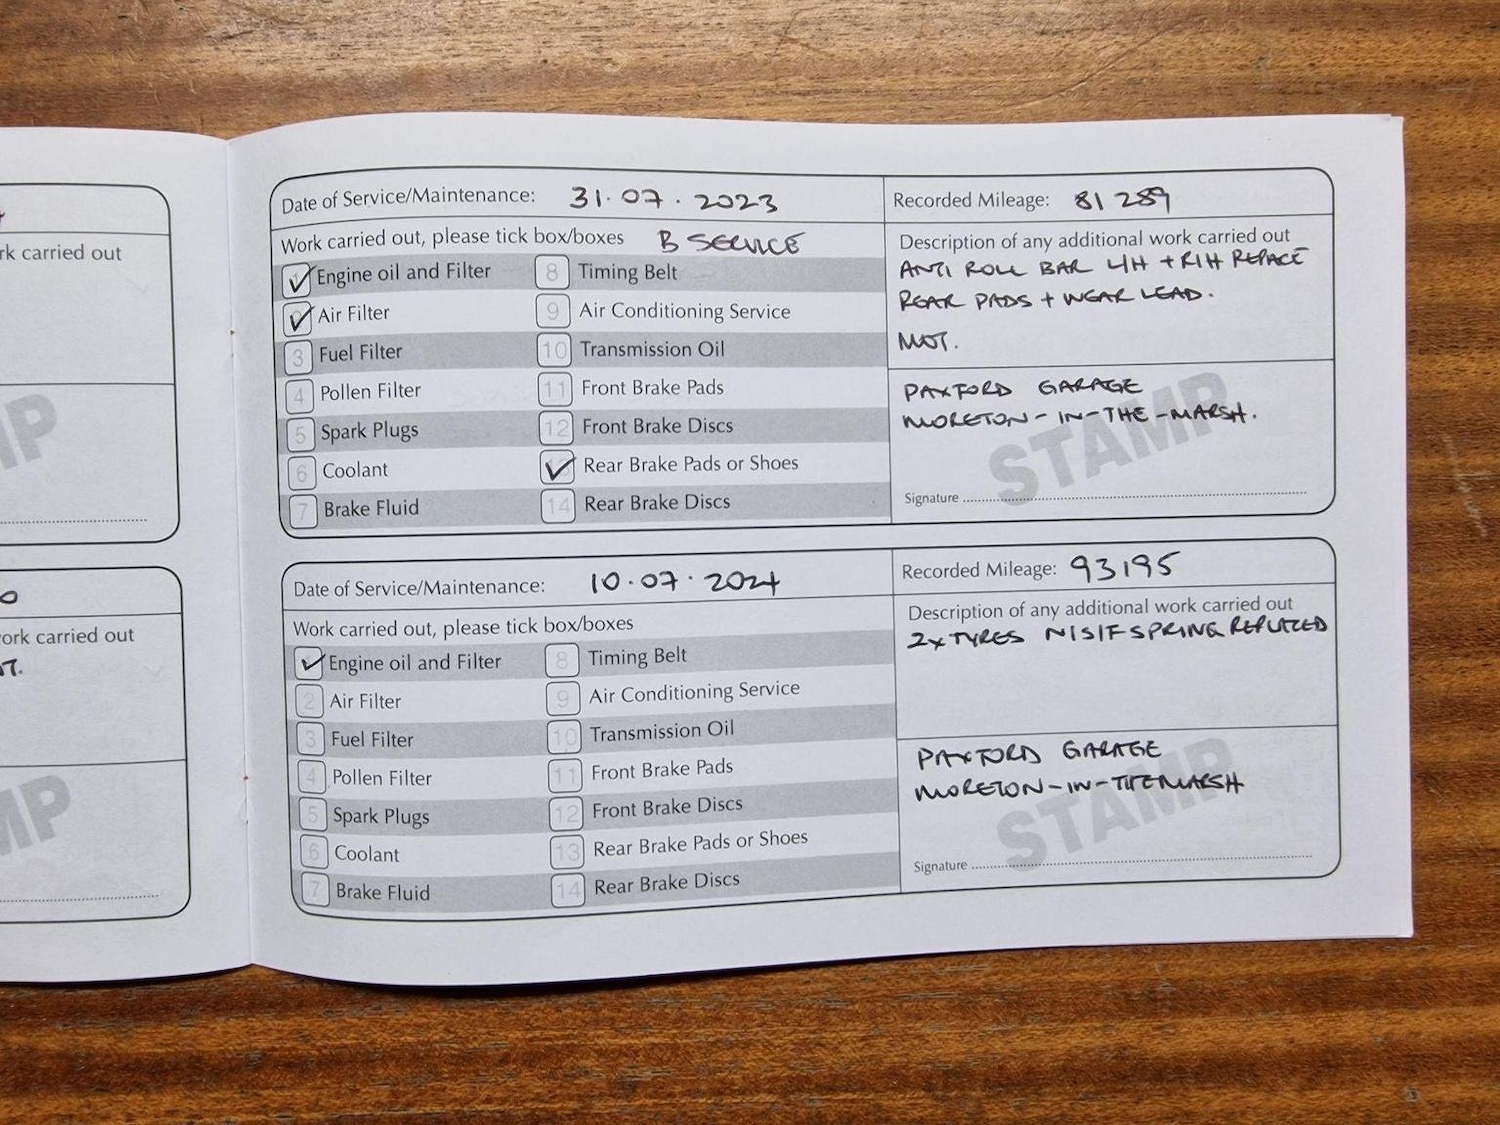 rk carried out
MP
o
ork carried out
T.
MP
Date of Service/Maintenance: 31.07.2023
Recorded Mileage: 81289
Work carried out, please tick box/boxes B SERVICE
1 Engine oil and Filter
Air Filter
3 Fuel Filter
4 Pollen Filter
5 Spark Plugs
6 Coolant
7 Brake Fluid
8 Timing Belt
9 Air Conditioning Service
10 Transmission Oil
11 Front Brake Pads
12 Front Brake Discs
Rear Brake Pads or Shoes
14 Rear Brake Discs
Description of any additional work carried out
ANTI ROLL BAR L/H + R/H REPACE
REAR PADS + WEAR LEAD.
MOT.
PAXFORD GARAGE
MORETON-IN-THE-MARSH.
STAMP
Signature
Date of Service/Maintenance: 10.07.2024
Recorded Mileage: 93195
Work carried out, please tick box/boxes
Engine oil and Filter
2 Air Filter
3 Fuel Filter
4 Pollen Filter
5 Spark Plugs
6 Coolant
7 Brake Fluid
8 Timing Belt
9 Air Conditioning Service
10 Transmission Oil
11 Front Brake Pads
12 Front Brake Discs
13 Rear Brake Pads or Shoes
14 Rear Brake Discs
Description of any additional work carried out
2x TYRES N/S/F SPRING REPLACED
PAXFORD GARAGE
MORETON-IN-THEMARSH
STAMP
Signature